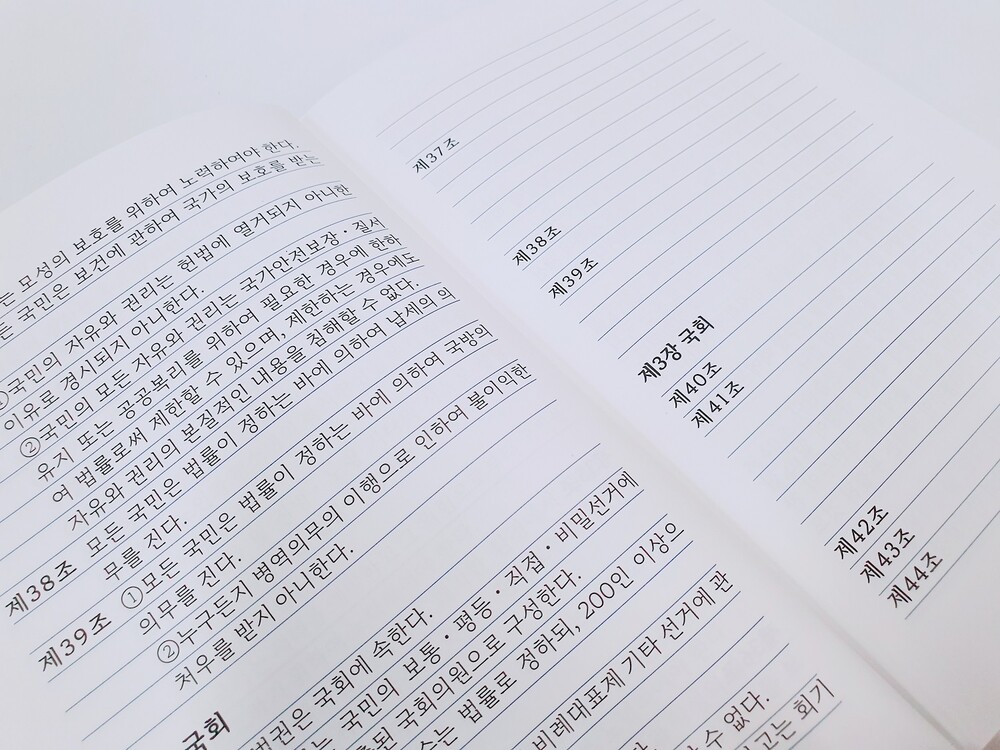 는 모성의 보호를 위하여 노력하여야 한다.
든 국민은 보건에 관하여 국가의 보호를 받는
①국민의 자유와 권리는 헌법에 열거되지 아니한
이유로 경시되지 아니한다.
②국민의 모든 자유와 권리는 국가안전보장·질서
유지 또는 공공복리를 위하여 필요한 경우에 한하
여 법률로써 제한할 수 있으며, 제한하는 경우에도
자유와 권리의 본질적인 내용을 침해할 수 없다.
제38조 모든 국민은 법률이 정하는 바에 의하여 납세의 의
무를 진다.
제39조 ①모든 국민은 법률이 정하는 바에 의하여 국방의
의무를 진다.
②누구든지 병역의무의 이행으로 인하여 불이익한
처우를 받지 아니한다.
국회
법권은 국회에 속한다.
는 국민의 보통·평등·직접·비밀선거에
출된 국회의원으로 구성한다.
수는 법률로 정하되, 200인 이상으
비례대표제 기타 선거에 관
수 없다.
고는 회기
제37조
제38조
제39조
제3장 국회
제40조
제41조
제42조
제43조
제44조